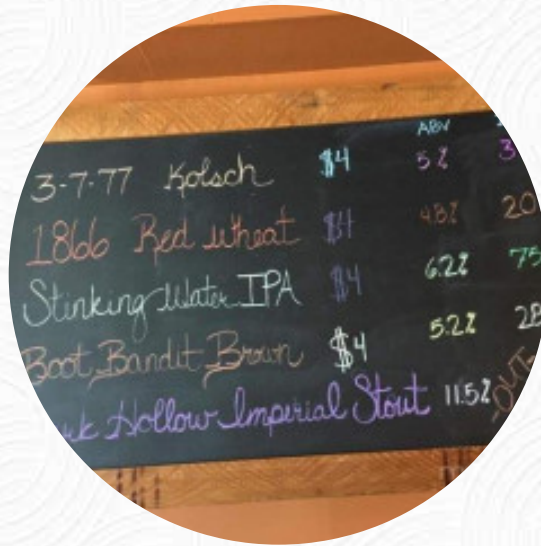 ABV
3-7-77 Kolsch $4 5%
1866 Red Wheat $4 4.8% 20
Stinking Water IPA $4 6.2% 75
Boot Bandit Brown $4 5.2% 28
Hollow Imperial Stout 11.5% -OUT-